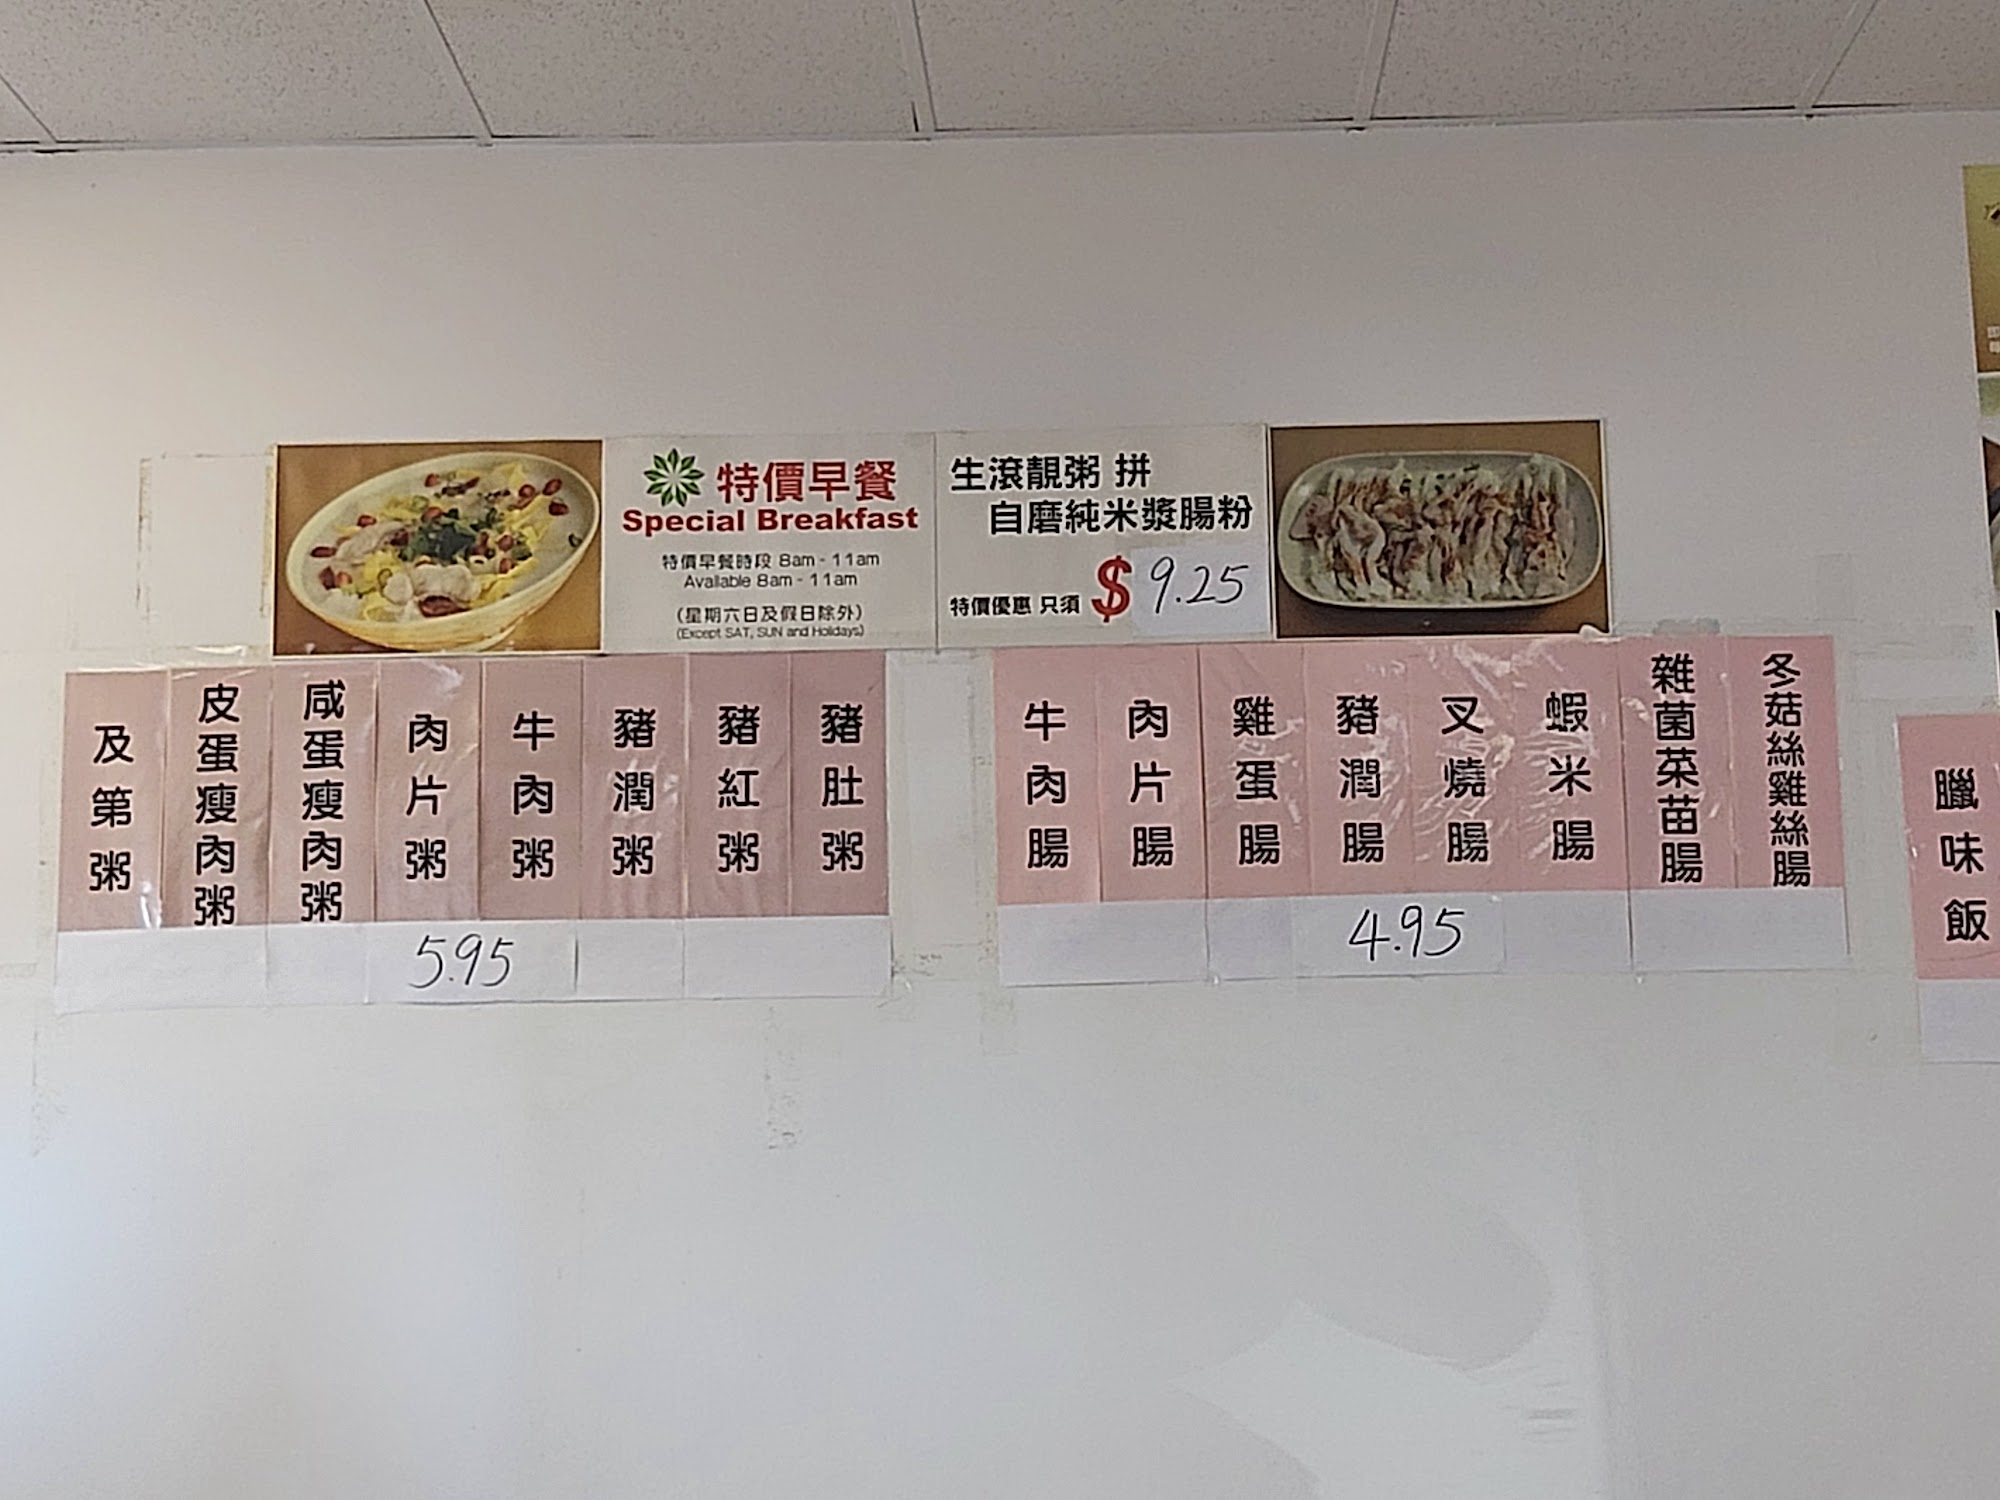 特價早餐
Special Breakfast
特價早餐時段 8am - 11am
Available 8am - 11am
(星期六日及假日除外)
(Except SAT, SUN and Holidays)
生滾靚粥 拼
自磨純米漿腸粉
特價優惠 只須 $ 9.25
及第粥
皮蛋瘦肉粥
咸蛋瘦肉粥
肉片粥
牛肉粥
豬潤粥
豬紅粥
豬肚粥
5.95
牛肉腸
肉片腸
雞蛋腸
豬潤腸
叉燒腸
蝦米腸
雜菌菜苗腸
冬菇絲雞絲腸
4.95
臘味飯